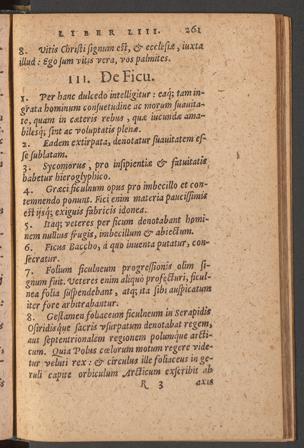 LIBER LIII. 261
8. Vitis Christi signum est, & ecclesiæ, iuxta
illud: Ego sum vitis vera, vos palmites.
III. De Ficu.
1. Per hanc dulcedo intelligitur: eaq; tam in-
grata hominum consuetudine ac morum suauita-
te, quam in cæteris rebus, quæ iucundæ ama-
bilesq; sint ac voluptatis plenæ.
2. Eadem extirpata, denotatur suauitatem es-
se sublatam.
3. Sycomorus, pro insipientiæ & fatuitatis
habetur hieroglyphico.
4. Græci ficulnum opus pro imbecillo et con-
temnendo ponunt. Fici enim materia paucissimis
est ijsq; exiguis fabricis idonea.
5. Itaq; veteres per ficum denotabant homi-
nem nullius frugis, imbecillum & abiectum.
6. Ficus Baccho, à quo inuenta putatur, con-
secratur.
7. Folium ficulneum progressionis olim si-
gnum fuit. Veteres enim aliquò profecturi, ficul-
nea folia suspendebant, atq; ita sibi auspicatum
iter fore arbitrabantur.
8. Gestamen foliaceum ficulneum in Serapidis
Osiridisque sacris vsurpatum denotabat regem,
aut septentrionalem regionem polumque arcti-
cum. Quia Polus cœlorum motum regere vide-
tur veluti rex: & circulus ille foliaceus in ge-
ruli capite orbiculum Arcticum exscribit ab
R 3 axis